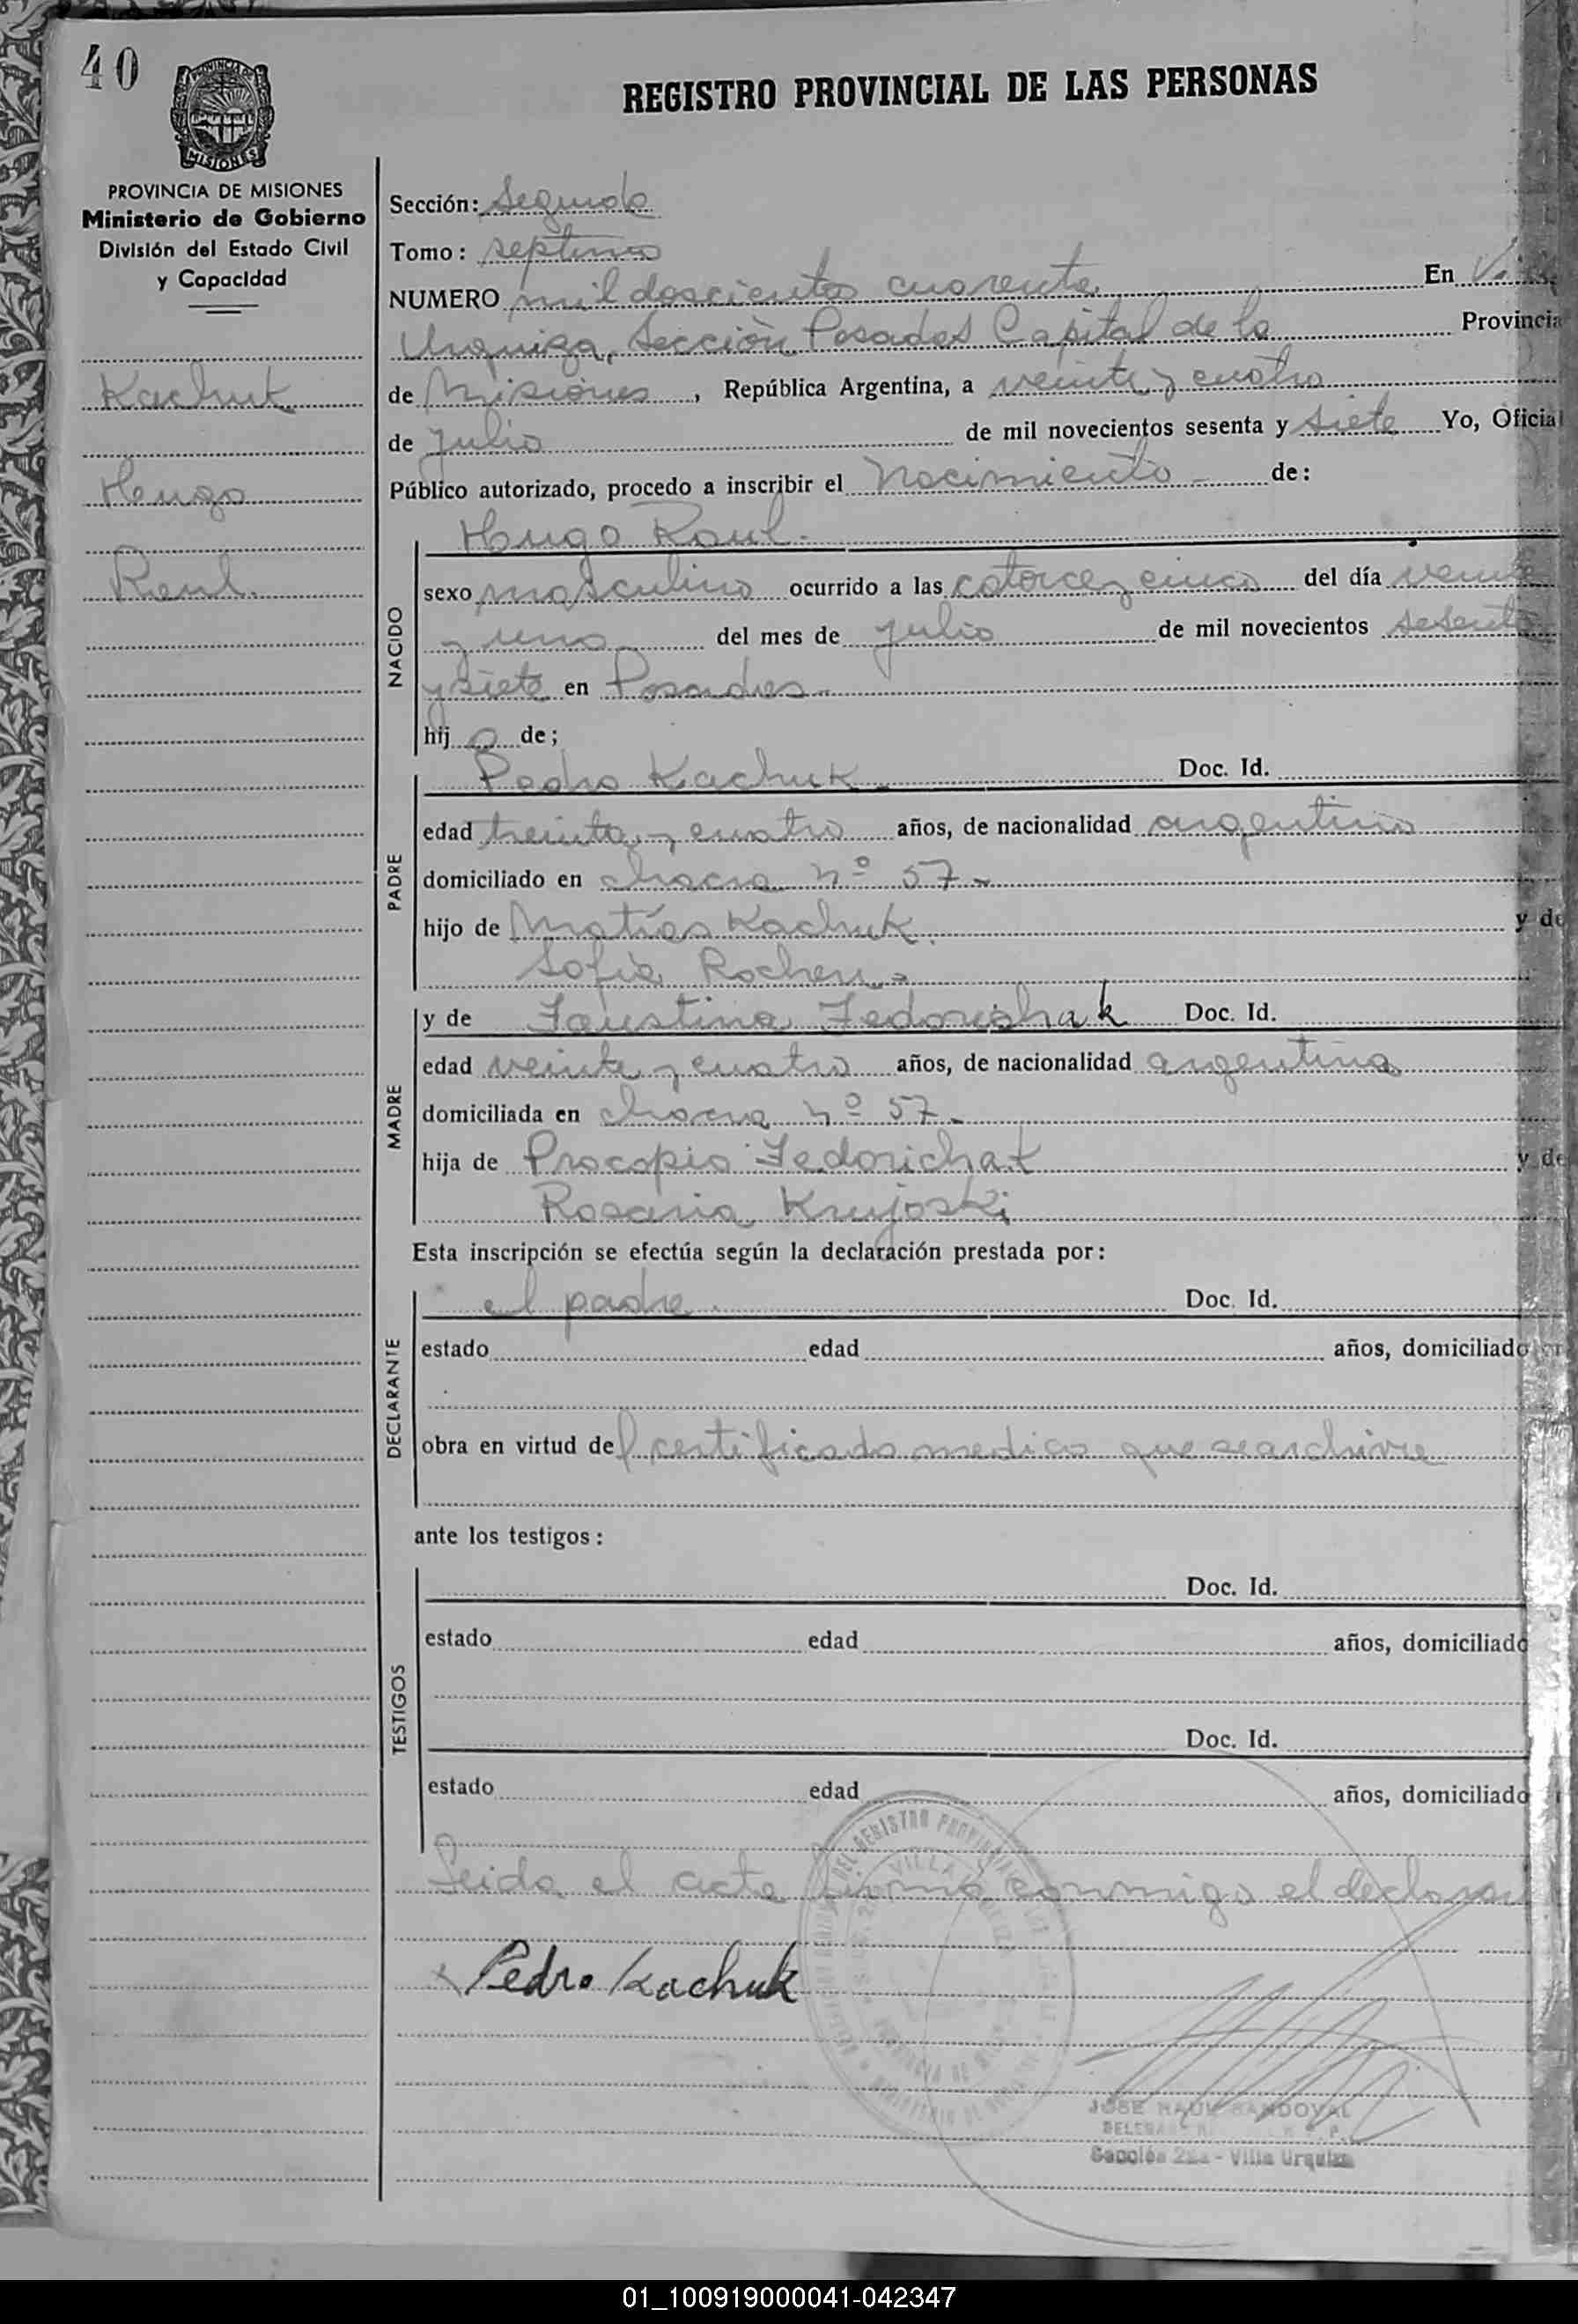 40
PROVINCIA DE
MISIONES
PROVINCIA DE MISIONES
Ministerio de Gobierno
División del Estado Civil
y Capacidad
Kachuk
Hugo
Raul.
REGISTRO PROVINCIAL DE LAS PERSONAS
Sección: Segunda
Tomo: septimo
NUMERO mil doscientos cuarenta En
Urquiza, Sección Posadas Capital de la Provincia
de Misiones, República Argentina, a veinte y cuatro
de julio de mil novecientos sesenta y siete Yo, Oficial
Público autorizado, procedo a inscribir el Nacimiento - de:
Hugo Raul.
NACIDO
sexo masculino ocurrido a las catorce y cinco del día veinte
y uno del mes de julio de mil novecientos sesenta
y siete en Posadas-
hijo de;
PADRE
Pedro Kachuk. Doc. Id.
edad treinta y cuatro años, de nacionalidad argentino
domiciliado en chacra nº 57-
hijo de Matías Kachuk. y de
Sofia
MADRE
y de Faustina Fedorishak Doc. Id.
edad veinte y cuatro años, de nacionalidad argentina
domiciliada en chacra nº 57-
hija de Procopio Fedorichat y de
Rosaria
Esta inscripción se efectúa según la declaración prestada por:
DECLARANTE
el padre. Doc. Id.
estado edad años, domiciliado
obra en virtud del certificado medico que se archive
ante los testigos:
TESTIGOS
Doc. Id.
estado edad años, domiciliado
Doc. Id.
estado edad años, domiciliado
Leida el acta firma conmigo el
Pedro Kachuk
DEL REGISTRO PROVINCIAL
VILLA
JOSE RAUL SANDOVAL
Sección 2da - Villa Urquiza
01_100919000041-042347